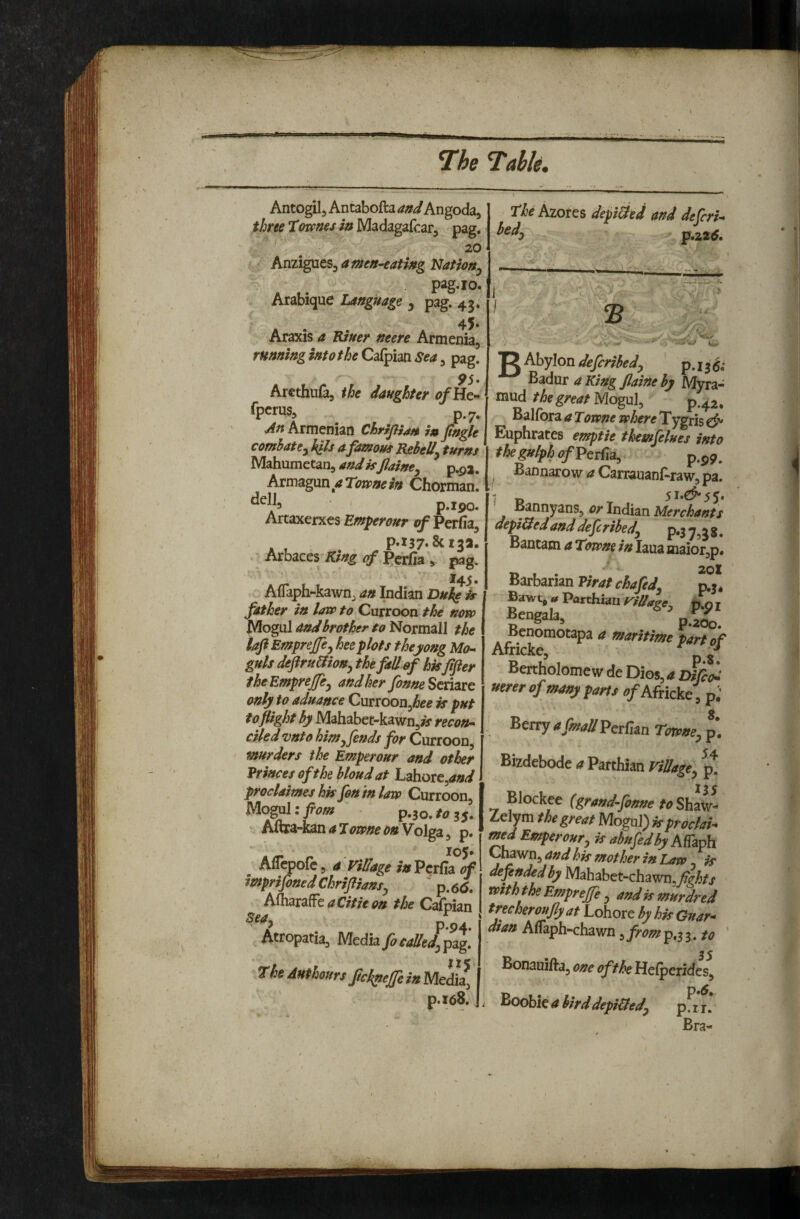 The Table.
Antogil, Antabosta and Angoda,
three Townes in Madagascar, pag.
20
Anzigues, a men-eating Nation,
pag.10.
Arabique Language , pag. 43.
45.
Araxis a Riuer neere Armenia,
running into the Caspian Sea , pag.
95.
Arethusa, the daughter of He-
sperus, p.7.
An Armenian Christian in single
combate, kils a famous Rebell, turns
Mahumetan, and is slaine, p.92.
Armagun a Towne in Chorman-
dell, p.190.
Artaxerxes Emperour of Persia,
p.137. & 132.
Arbaces King of Persia , pag.
145.
Assaph-kawn, an Indian Duke is
father in law to Curroon the now
Mogul and brother to Normall the
last Empresse, hee plots the yong Mo-
guls destruction, the fall of his sister
the Empresse, and her sonne Seriare
only to aduance Curroon, hee is put
to flight by Mahabet-kawn, is recon-
ciled vnto him, sends for Curroon,
murders the Emperour and other
Princes of the bloud at Lahore, and
proclaimes his son in law Curroon,
Mogul : from p.30. to 35.
Astra-kan a Towne on Volga , p.
105.
Assepose , a Village in Persia of
imprisoned Christians, p.66.
Asharaffe a Citie on the Caspian
Sea, p.94.
Atropatia, Media so called, pag.
115
The Authours sicknesse in Media,
p.168.
The Azores depicted and descri-
bed, p.226.
B
BAbylon described, p.136.
Badur a King slaine by Myra-
mud the great Mogul, p.42.
Balsora a Towne where Tygris &
Euphrates emptie themselues into
the gulph of Persia, p.99.
Bannarow a Carrauans-raw, pa.
51.& 55.
Bannyans, or Indian Merchants
depicted and described, p.37,38.
Bantam a Towne in Iaua maior, p.
201
Barbarian Pirat chased, p.3.
Bawt, a Parthian Village, p.91
Bengala, p.200.
Benomotapa a maritime part of
Africke, p.8.
Bertholomew de Dios, a Disco-
uerer of many parts of Africke , p.
8.
Berry a small Persian Towne, p.
54
Bizdebode a Parthian Village, p.
135
Blockee (grand-sonne to Shaw-
Zelym the great Mogul) is proclai-
med Emperour, is abused by Assaph
Chawn, and his mother in Law , is
defended by Mahabet-chawn, fights
with the Empresse , and is murdred
trecherously at Lohore by his Guar-
dian Assaph-chawn , from p.33. to
35
Bonauista, one of the Hesperides,
p.6.
Boobie a bird depicted, p.11.
Bra-